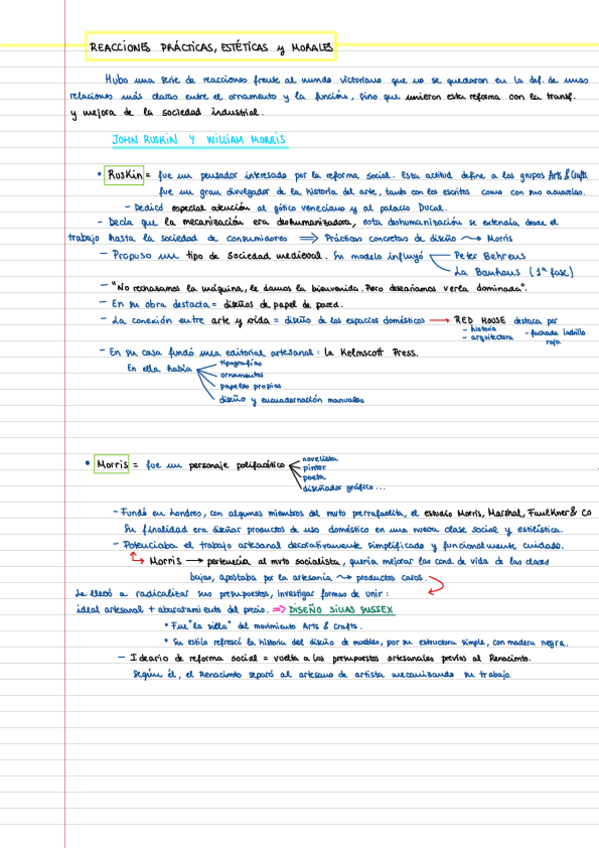 REACCIONES PRÁCTICAS, ESTÉTICAS y MORALES
Hubo una serie de reacciones frente al mundo victoriano que no se quedaron en la def. de unas
relaciones más claras entre el ornamento y la función, sino que unieron esta reforma con la transf.
y mejora de la sociedad industrial.
JOHN RUSKIN Y WILLIAM MORRIS
• Ruskin = fue un pensador interesado por la reforma social. Esta actitud define a los grupos Arts & Crafts
fue un gran divulgador de la historia del arte, tanto con los escritos como con sus acuarelas.
- Dedicó especial atención al gótico veneciano y al palacio Ducal.
- Decía que la mecanización era deshumanizadora, esta deshumanización se extendía desde el
trabajo hasta la sociedad de consumidores ⟹ Prácticas concretas de diseño ⤳ Morris
- Propuso un tipo de sociedad medieval. Su modelo influyó
Peter Behrens
La Bauhaus (1ª fase)
- "No rechazamos la máquina, le damos la bienvenida. Pero desearíamos verla dominada".
- En su obra destaca = diseños de papel de pared.
- La conexión entre arte y vida = diseño de los espacios domésticos → RED HOUSE destaca por
- historia
- arquitectura
- fachada ladrillo
rojo
- En su casa fundó una editorial artesanal: la Kelmscott Press.
En ella había
tipografías
ornamentos
papeles propios
diseño y encuadernación manuales
• Morris = fue un personaje polifacético
novelista
pintor
poeta
diseñador gráfico...
- Fundó en Londres, con algunos miembros del mvto prerrafaelita, el estudio Morris, Marshal, Faulkner & Co
Su finalidad era diseñar productos de uso doméstico en una nueva clase social y estilística.
- Potenciaba el trabajo artesanal decorativamente simplificado y funcionalmente cuidado.
Morris → pertenecía al mvto socialista, quería mejorar las cond. de vida de las clases
bajas, apostaba por la artesanía ⤳ productos caros.
Se llegó a radicalizar sus presupuestos, investigar formas de unir:
ideal artesanal + abaratamiento del precio. ⇒ DISEÑO SILLAS SUSSEX
• Fue "la silla" del movimiento Arts & Crafts.
• Su estilo refrescó la historia del diseño de muebles, por su estructura simple, con madera negra.
- Ideario de reforma social = vuelta a los presupuestos artesanales previos al Renacimto.
Según él, el Renacimto separó al artesano de artista mecanizando su trabajo